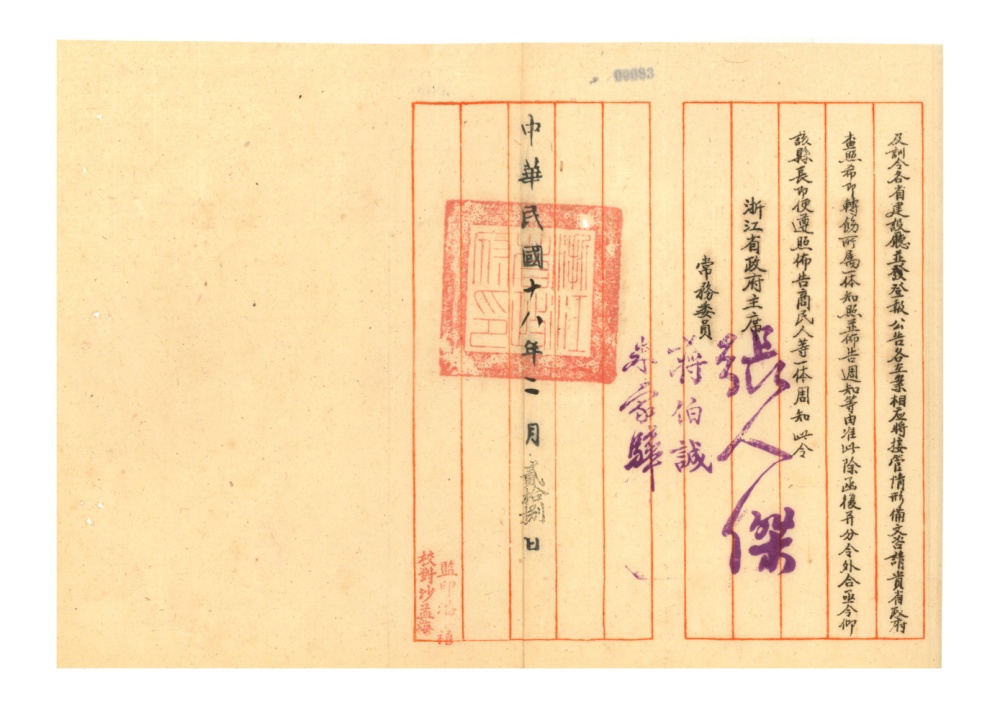 09083
及訓令各省建設廳並發登報公告各在案相應將接管情形備文咨請貴省政府
查照希即轉飭所屬一体知照並佈告週知等由准此除函復并分令外合亟令仰
該縣長即便遵照佈告商民人等一体周知此令
浙江省政府主席張人傑
常務委員蔣伯誠
朱家驊
中華民國十八年二月貳拾捌日
浙江省政府印
監印
校對沙孟海